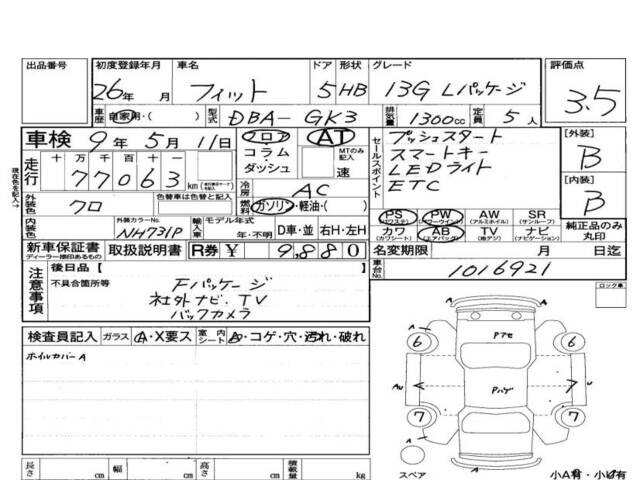 出品番号 初度登録年月 車名 ドア 形状 グレード 評価点
26年 月 フィット 5 HB 13G Lパッケージ 3.5
車歴 自家用・( ) 型式 DBA- GK3 排気量 1300cc 定員 5人
車検 9年 5月 11日 フロア コラム・ダッシュ AT MTのみ記入 速
セールスポイント プッシュスタート
スマートキー
LEDライト
ETC
[外装] B
[内装] B
現在色を記入→
走行 十 万 千 百 十 一
77063 km
冷房 AC
外装色 クロ 色替車は色替と記入 燃料 ガソリン・軽油・( )
PS (パワステ) PW (パワーウインド) AW (アルミホイル) SR (サンルーフ)
カワ (カワシート) AB (エアバッグ) TV (地デジ) ナビ (ナビゲーション) 純正品のみ丸印
内装色 外装カラーNo. NH731P 輸入車 モデル年式 年・不明 D車・並 右H・左H
新車保証書 ディーラー捺印あるもの 取扱説明書 R券 ¥ 9,880 名変期限 月 日迄
車台No. 1016921
注意事項 後日品[ ]
不具合箇所等 Fパッケージ
社外ナビ.TV
バックカメラ
ロック車
検査員記入 ガラス A・X要ス 室内シート A・コゲ・穴・汚れ・破れ
ホイルカバーA
A A
6 Pアセ 6
AU Pハゲ U
7 7
A A
スペア 小A有・小U有
長さ cm 幅 cm 高さ cm 積載量 kg